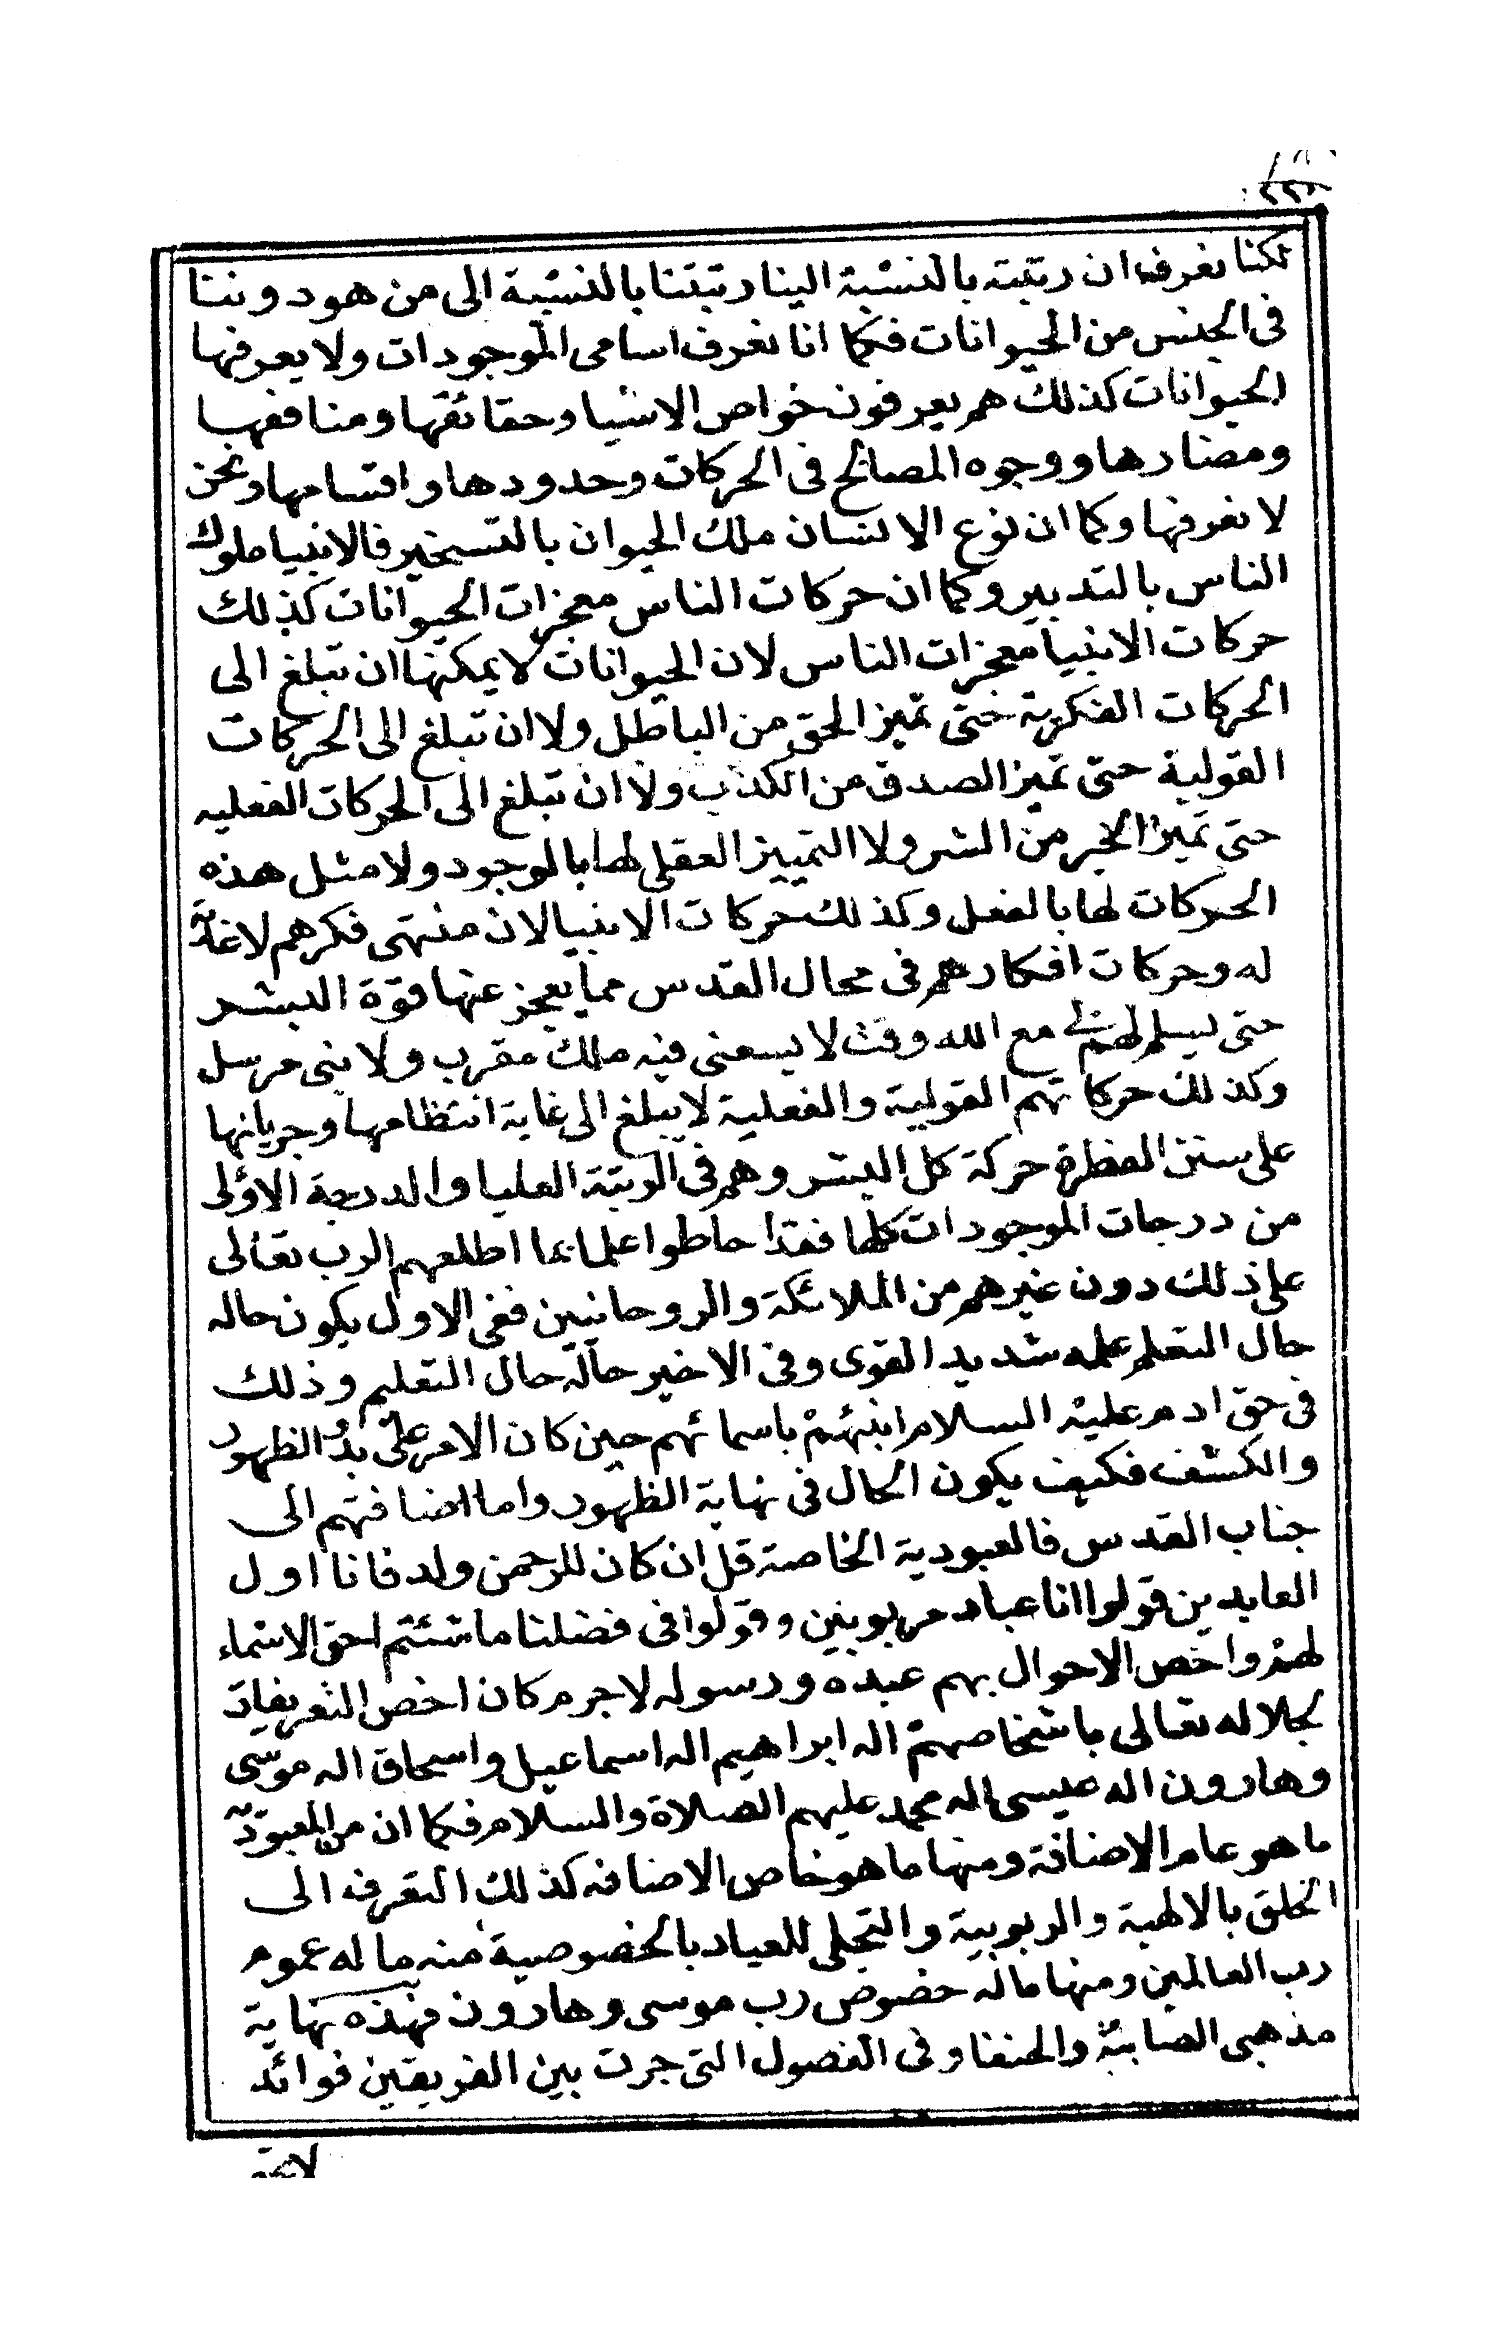 لكنا نعرف ان رتبته بالنسبة الينا رتبتنا بالنسبة الى من هو دوننا
في الجنس من الحيوانات فكما انا نعرف اسامى الموجودات ولا يعرفها
الحيوانات كذلك هم يعرفون خواص الاشيا وحقائقها ومنافعها
ومضارها ووجوه المصالح فى الحركات وحدودها واقسامها ونحن
لا نعرفها وكما ان نوع الانسان ملك الحيوان بالتسخير فالانبيا ملوك
الناس بالتدبير وكما ان حركات الناس معجزات الحيوانات كذلك
حركات الانبيا معجزات الناس لان الحيوانات لا يمكنها ان تبلغ الى
الحركات الفكرية حتى تميز الحق من الباطل ولا ان تبلغ الى الحركات
القولية حتى تميز الصدق من الكذب ولا ان تبلغ الى الحركات الفعليه
حتى تميز الخير من الشر ولا التمييز العقلى لها بالموجود ولا مثل هذه
الحركات لها بالفعل وكذلك حركات الانبيا لان منتهى فكرهم لا غاية
له وحركات افكارهم فى مجال القدس مما يعجز عنها قوة البشر
حتى يسلم لهم لى مع الله وقت لا يسعنى فيه ملك مقرب ولا نبى مرسل
وكذلك حركاتهم القولية والفعلية لا يبلغ الى غاية انتظامها وجريانها
على سنن الفطرة حركة كل البشر وهم فى الرتبة العليا والدرجة الاولى
من درجات الموجودات كلها فقد احاطوا علما بما اطلعهم الرب تعالى
على ذلك دون غيرهم من الملائكة والروحانيين ففى الاول يكون حاله
حال التعلم علمه شديد القوى وفى الاخير حاله حال التعليم وذلك
فى حق ادم عليه السلام انبئهم باسمائهم حين كان الامر على بدو الظهور
والكشف فكيف يكون الحال فى نهاية الظهور واما اضافتهم الى
جناب القدس فالعبودية الخاصة قل ان كان للرحمن ولد فانا اول
العابدين قولوا انا عباد مربوبين وقولوا فى فضلنا ما شئتم احق الاسماء
لهم واخص الاحوال بهم عبده ورسوله لا جرم كان اخص التعريفات
لجلاله تعالى باشخاصهم اله ابراهيم اله اسماعيل واسحاق اله موسى
وهارون اله عيسى اله محمد عليهم الصلاة والسلام فكما ان من العبودية
ما هو عام الاضافة ومنها ما هو خاص الاضافه كذلك التعرف الى
الخلق بالالهية والربوبية والتجلى للعباد بالخصوصية منه ما له عموم
رب العالمين ومنها ماله خصوص رب موسى وهارون فهذه نهاية
مذهبى الصابئة والحنفا وفى الفصول التى جرت بين الفريقين فوائد